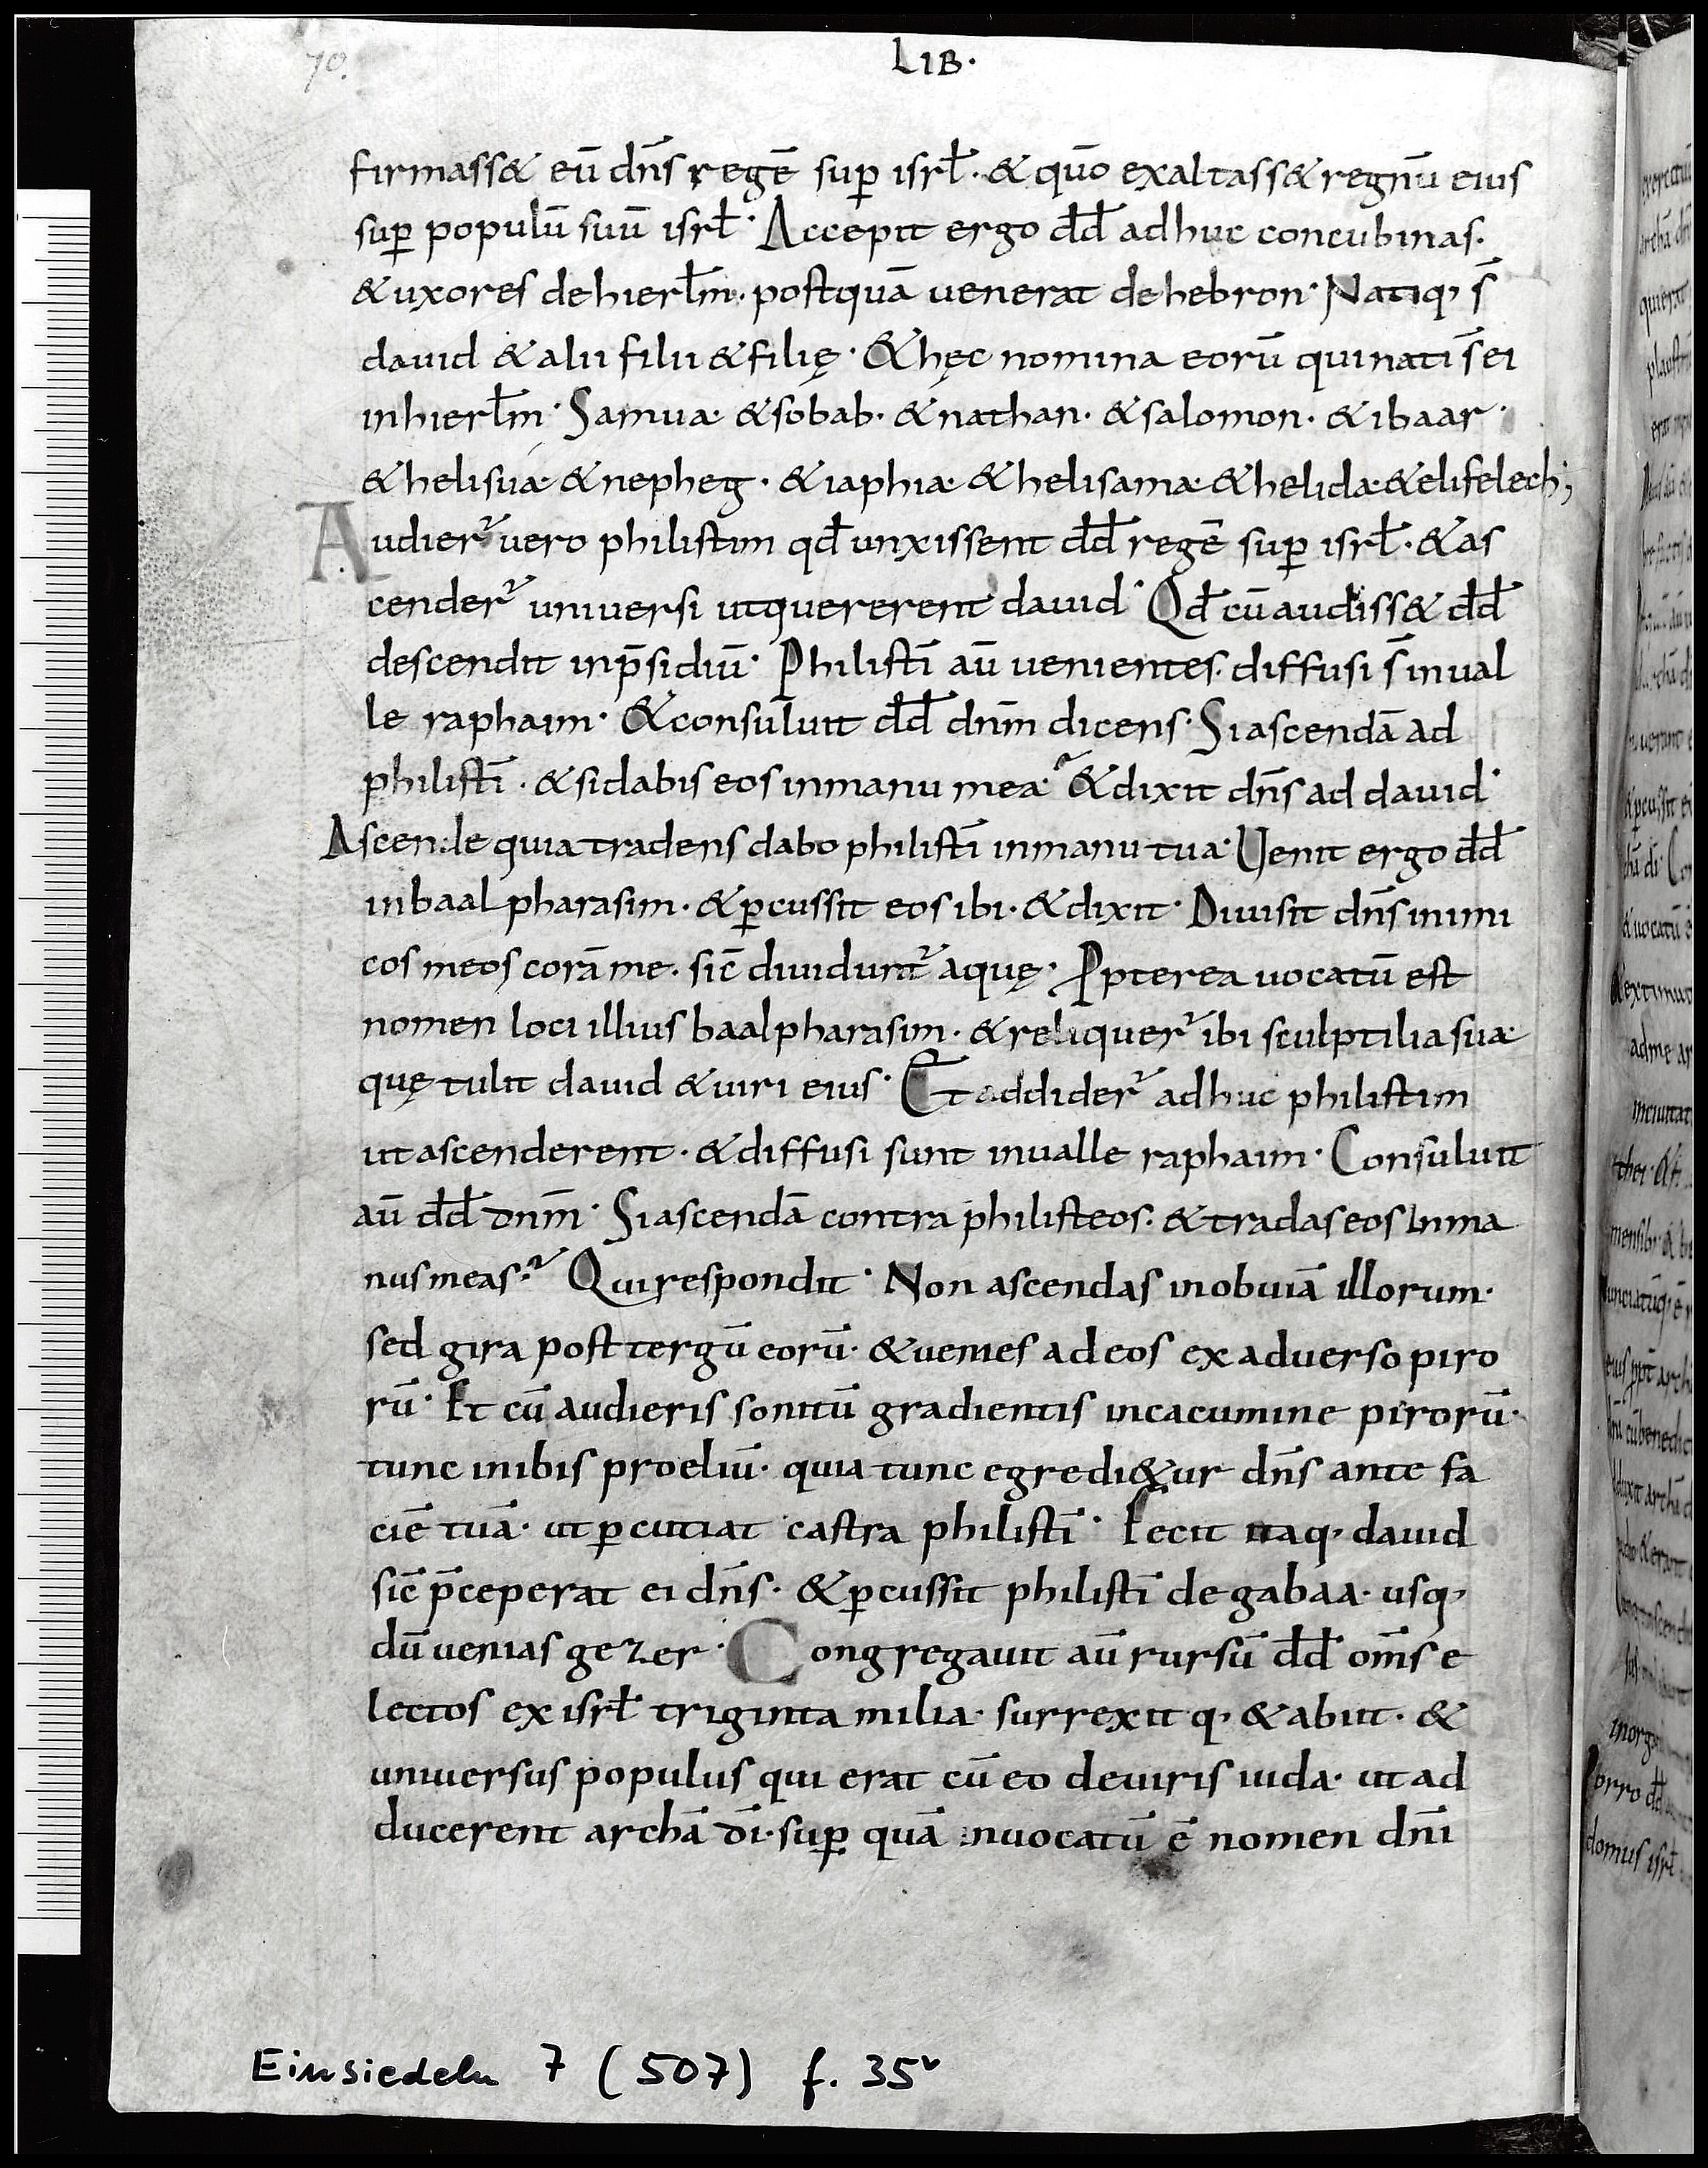 70.
LIB.
firmass& eū dn̄s regē sup̱ isrł· & quō exaltass& regnū eius
sup̱ populū suū isrł· Accepit ergo dd̄ adhuc concubinas·
& uxores dehierłm· postquā uenerat dehebron· Natiq; s̄
dauid & alii filii & filię· & hęc nomina eorū quinati s̄ ei
inhierłm· Samua· & sobab· & nathan· & salomon· & ibaar·
& helisua· & nepheg· & iaphia· & helisama· & helida· & elifelech;
Audier̄ uero philistim qd̄ unxissent dd̄ regē sup̱ isrł· & as
cender̄ uniuersi utquererent dauid· Qd̄ cū audiss& dd̄
descendit inp̄sidiū· Philistī aū uenientes· diffusi s̄ inual
le raphaim· & consuluit dd̄ dnm̄ dicens· Si ascendā ad
philistī· & sidabis eos inmanu mea? & dixit dn̄s ad dauid·
Ascende quia tradens dabo philistī inmanu tua· Uenit ergo dd̄
inbaal pharasim· & p̱cussit eos ibi· & dixit· Diuisit dn̄s inimi
cos meos corā me· sic̄ diuidunt᷑ aquę· P̱pterea uocatū est
nomen loci illius baalpharasim· & reliquer̄ ibi sculptilia sua·
quę tulit dauid & uiri eius· Et addider̄ adhuc philistim
ut ascenderent· & diffusi sunt inualle raphaim· Consuluit
aū dd̄ dnm̄· Si ascendā contra philisteos· & tradas eos inma
nus meas? Qui respondit· Non ascendas inobuiā illorum·
sed gira post tergū eorū· & uenies ad eos ex aduerso piro
rū· Et cū audieris sonitū gradientis incacumine pirorū·
tunc inibis proeliū· quia tunc egredi&ur dn̄s ante fa
ciē tuā· ut p̱cutiat castra philistī· Fecit itaq; dauid
sic̄ p̄ceperat ei dn̄s· & p̱cussit philistī de gabaa· usq;
dū uenias gezer· Congregauit aū rursū dd̄ om̄s e
lectos ex isrł triginta milia· surrexitq; & abiit· &
uniuersus populus qui erat cū eo deuiris iuda· ut ad
ducerent archā dī· sup̱ quā inuocatū ē nomen dn̄i
Einsiedeln 7 (507) f. 35v